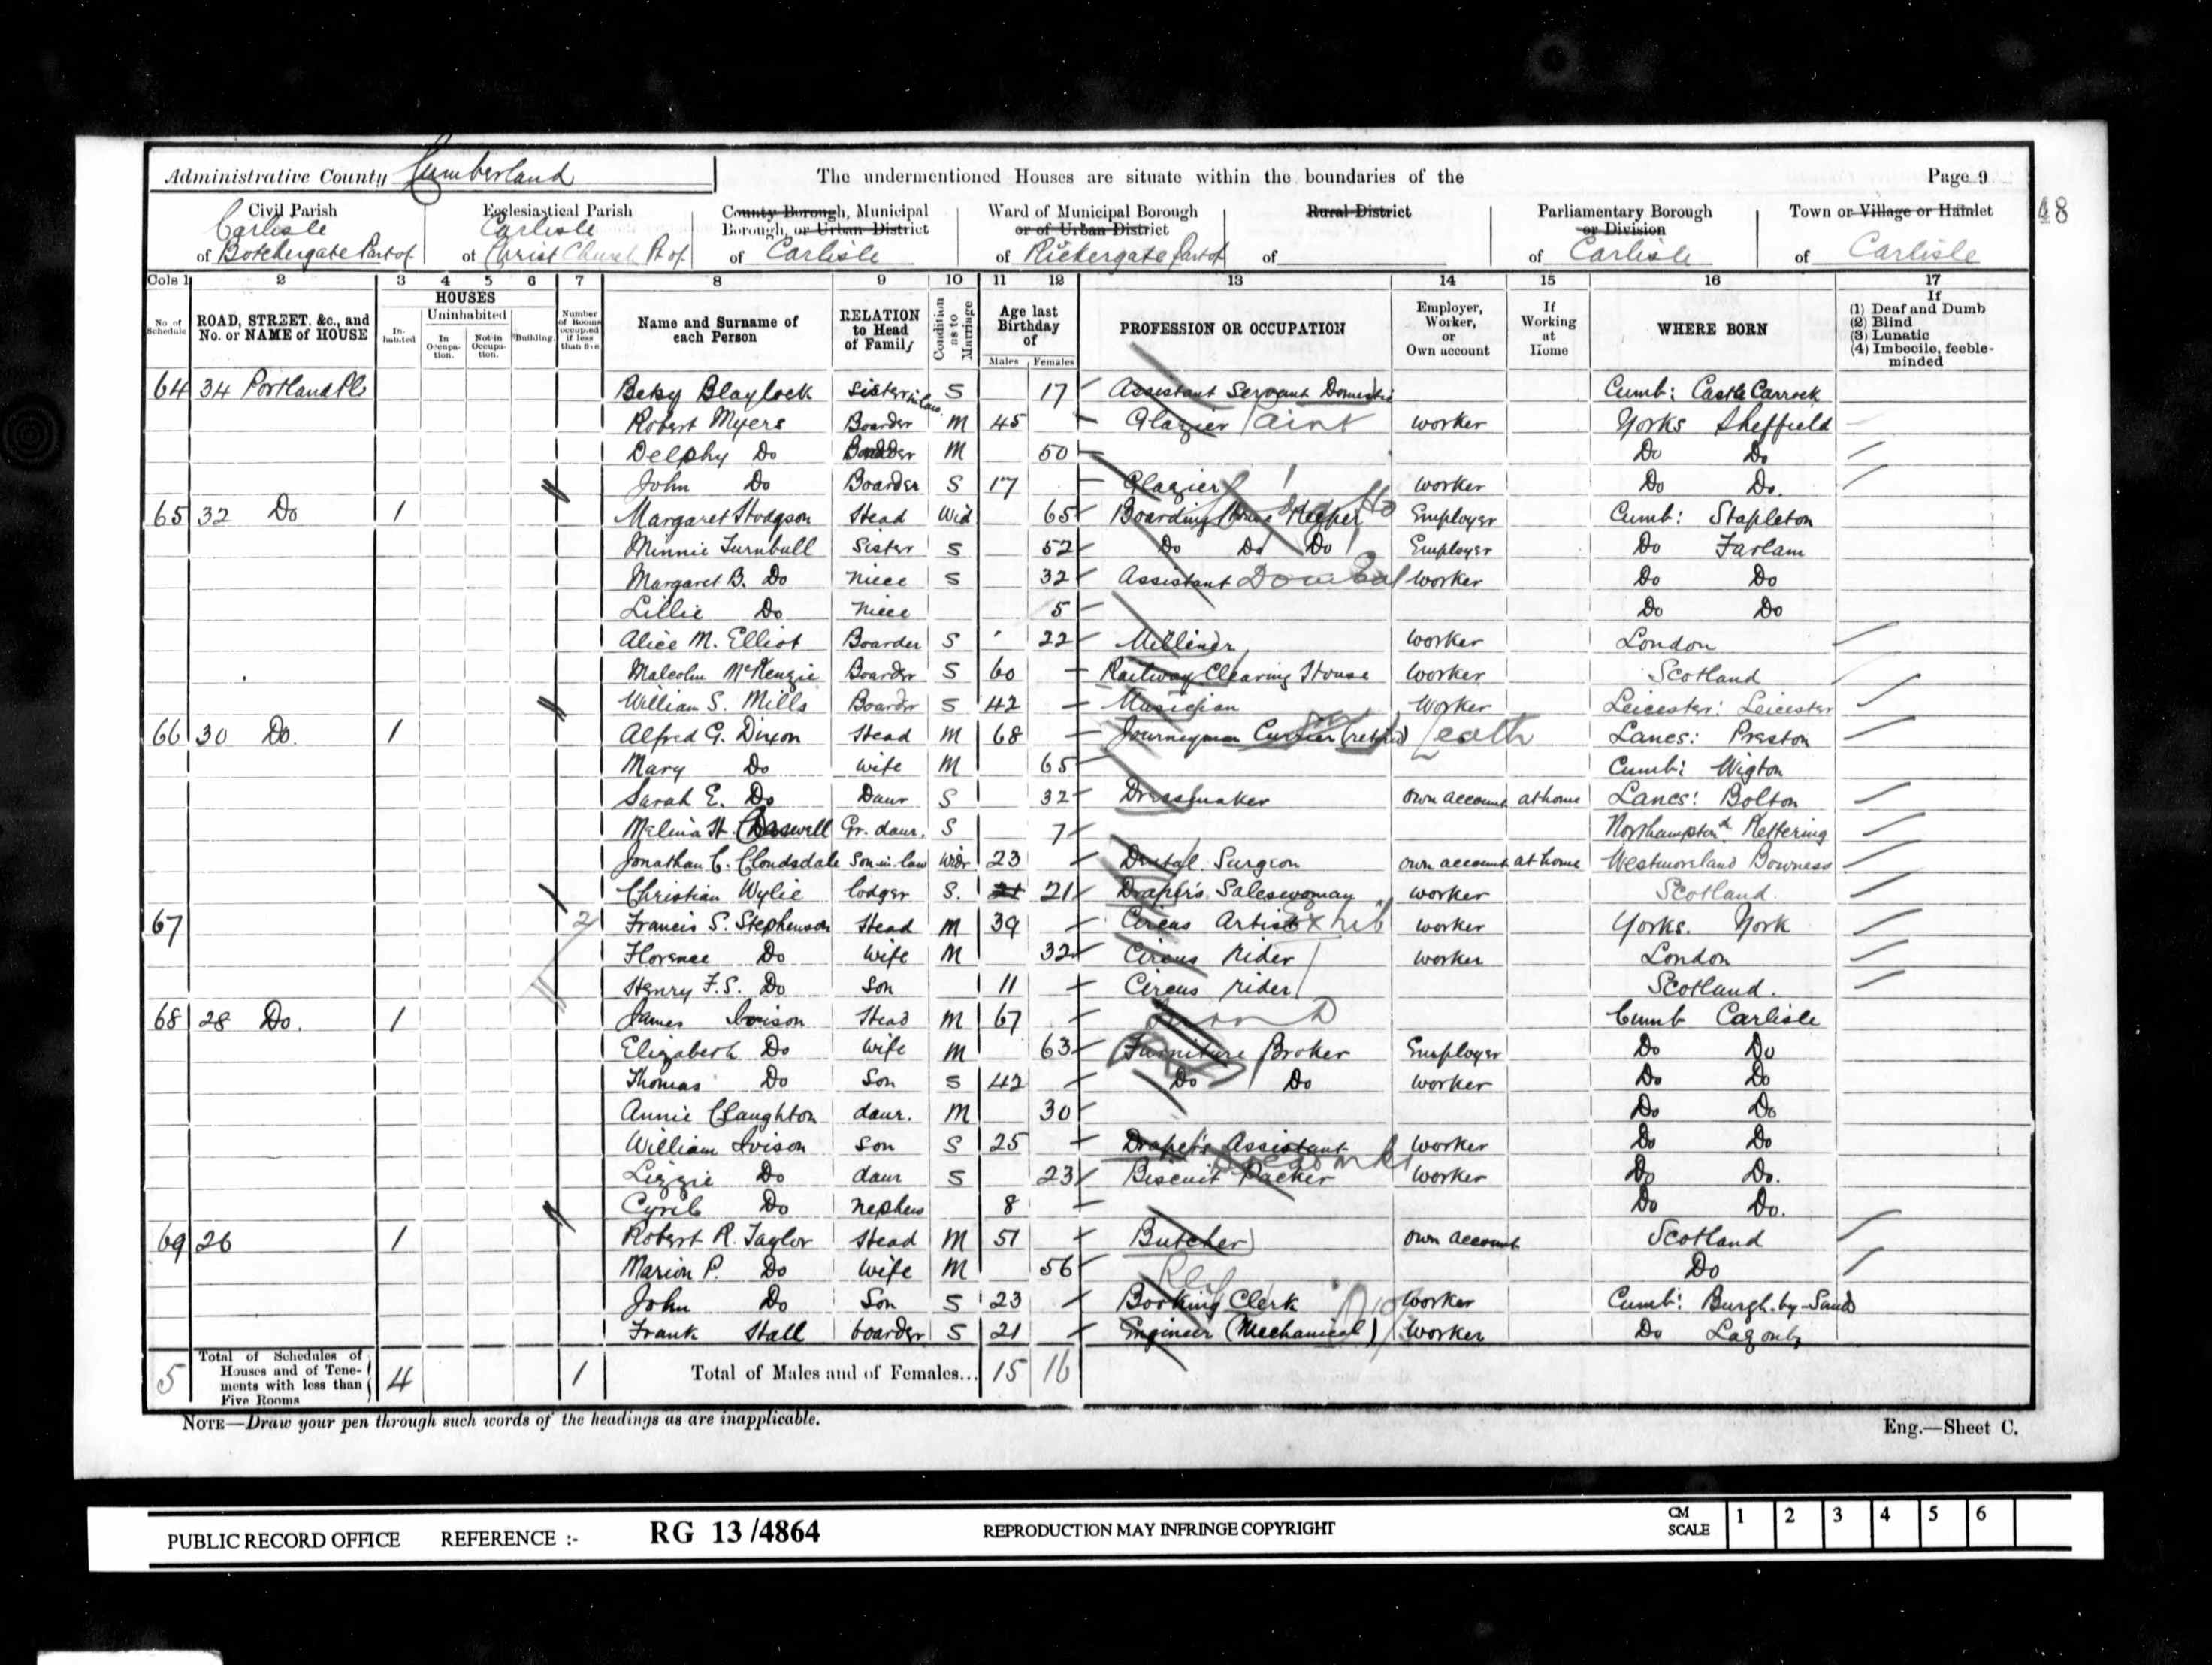 Administrative County Cumberland The undermentioned Houses are situate within the boundaries of the Page 9
48
Civil Parish Ecclesiastical Parish County Borough, Municipal Ward of Municipal Borough Rural District Parliamentary Borough Town or Village or Hamlet
Carlisle Carlisle Borough, or Urban District or of Urban District or Division
of Botchergate Part of of Christ Church Pt of of Carlisle of Rickergate Part of of of Carlisle of Carlisle
Cols 1 2 3 4 5 6 7 8 9 10 11 12 13 14 15 16 17
No. of Schedule ROAD, STREET, &c., and No. or NAME of HOUSE HOUSES Inhabited Uninhabited In Occupation. Not in Occupation. Building. Number of Rooms occupied if less than five Name and Surname of each Person RELATION to Head of Family Condition as to Marriage Age last Birthday of Males Females PROFESSION OR OCCUPATION Employer, Worker, or Own account If Working at Home WHERE BORN If (1) Deaf and Dumb (2) Blind (3) Lunatic (4) Imbecile, feeble-minded
64 34 Portland Ple Betsy Blaylock Sister in law S 17 Assistant Servant Domestic Cumb: Castle Carrock
Robert Myers Boarder M 45 Glazier Paint worker Yorks Sheffield
Delphy Do Boarder M 50 Do Do
John Do Boarder S 17 Glazier worker Do Do.
65 32 Do 1 Margaret Hodgson Head Wid 65 Boarding House Keeper Employer Cumb: Stapleton
Minnie Turnbull Sister S 52 Do Do Do Employer Do Farlam
Margaret B. Do Niece S 32 Assistant worker Do Do
Lillie Do Niece 5 Do Do
Alice M. Elliot Boarder S 22 Milliner worker London
Malcolm McKenzie Boarder S 60 Railway Clearing House worker Scotland
William S. Mills Boarder S 42 Musician Worker Leicester: Leicester
66 30 Do. 1 Alfred G. Dixon Head M 68 Journeyman Currier (retired) Leath Lancs: Preston
Mary Do Wife M 65 Cumb: Wigton
Sarah E. Do Daur S 32 Dressmaker own account at home Lancs: Bolton
H. Gr. daur. S 7 Northamptond Kettering
Jonathan C. Cloudsdale Son-in-law Widr 23 Dental Surgeon own account at home Westmoreland Bowness
Christian Wylie lodger S. 21 21 Draper's Saleswoman worker Scotland
67 2 Francis S. Stephenson Head M 39 Circus Artist Exhib worker Yorks. York
Florence Do Wife M 32 Circus Rider worker London
Henry F.S. Do Son 11 Circus rider Scotland.
68 28 Do. 1 James Ivison Head M 67 Cumb Carlisle
Elizabeth Do Wife M 63 Furniture Broker Employer Do Do
Thomas Do Son S 42 Do Do worker Do Do
Annie Claughton daur. M 30 Do Do
William Ivison Son S 25 Draper's Assistant worker Do Do
Lizzie Do daur S 23 Biscuit Packer worker Do Do.
Cyril Do Nephew 8 Do Do.
69 26 1 Robert R. Taylor Head M 51 Butcher own account Scotland
Marion P. Do Wife M 56 Do
John Do Son S 23 Booking Clerk worker Cumb: Burgh-by-Sands
Frank Hall boarder S 21 Engineer (Mechanical) worker Do Lazonby
5 Total of Schedules of Houses and of Tenements with less than Five Rooms 4 1 Total of Males and of Females... 15 16
NOTE—Draw your pen through such words of the headings as are inapplicable.
Eng.—Sheet C.
PUBLIC RECORD OFFICE REFERENCE :- RG 13 /4864 REPRODUCTION MAY INFRINGE COPYRIGHT CM SCALE 1 2 3 4 5 6